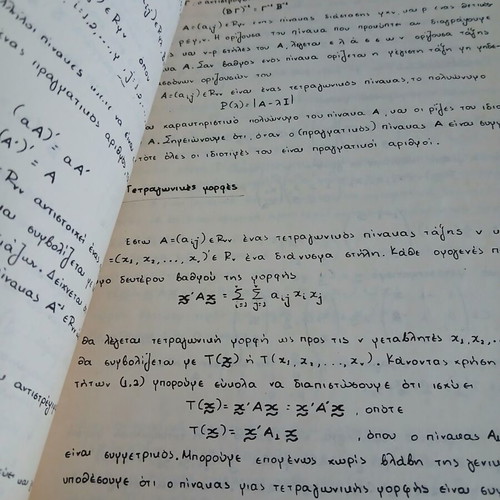 (ΒΓ)⁻¹ = Γ⁻¹ Β⁻¹
Α=(αij)∈Rνν
ρ≤ν. Η ορίζουσα του πίνακα που προκύπτει αν διαγράψουμε
και ν-ρ στήλες του Α, λέγεται ελάσσων ορίζουσα τάξης
Α. Σαν βαθμός ενός πίνακα ορίζεται η μέγιστη τάξη μη μηδε
ελασσόνων οριζουσών του
Α=(αij)∈Rνν είναι ένας τετραγωνικός πίνακας, το πολυώνυμο
P(λ)=|Α-λΙ|
χαρακτηριστικό πολυώνυμο του πίνακα Α, και οι ρίζες του ιδιο
Α. Σημειώνουμε ότι, όταν ο (πραγματικός) πίνακας Α είναι συμμ
τότε όλες οι ιδιοτιμές του είναι πραγματικοί αριθμοί.
Τετραγωνικές μορφές
Έστω Α=(αij)∈Rνν ένας τετραγωνικός πίνακας τάξης ν κ
=(x₁,x₂,...,xν)'∈Rν ένα διάνυσμα στήλη. Κάθε ομογενές π
δευτέρου βαθμού της μορφής
x'Ax = Σ Σ αij xi xj
θα λέγεται τετραγωνική μορφή ως προς τις ν μεταβλητές x₁,x₂,...
θα συμβολίζεται με T(x) ή T(x₁,x₂,...,xν). Κάνοντας χρήση
τήτων (1,2) μπορούμε εύκολα να διαπιστώσουμε ότι ισχύει
T(x)= x'Ax = x'A'x , οπότε
T(x)= x'A₁x , όπου ο πίνακας Α₁
είναι συμμετρικός. Μπορούμε επομένως χωρίς βλάβη της γενικ
υποθέσουμε ότι ο πίνακας μιας τετραγωνικής μορφής είναι συμ
πίνακες
πραγματικός αριθμός
(αΑ)' = αΑ'
(Α')' = Α
Rνν αντιστοιχεί ένας
συμβολίζεται με
Δείκνυεται
πίνακας Α⁻¹∈Rνν